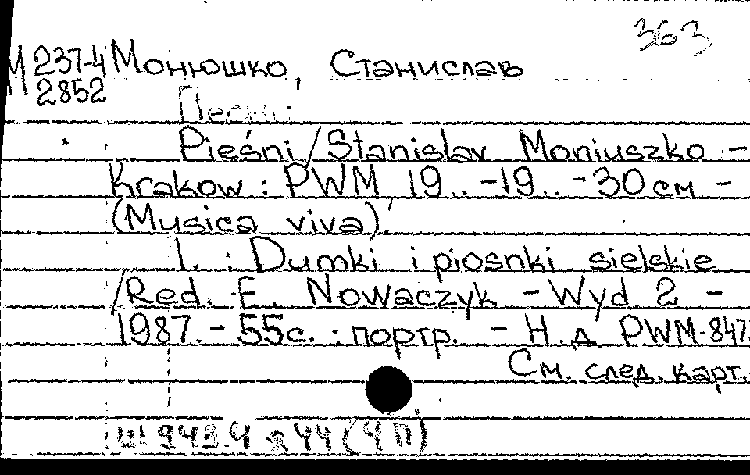 363
М 237-4 Монюшко, Станислав
2852
Песни.
Pieśni / Stanislav Moniuszko -
Krakow : PWM 19.. -19.. - 30 см -
(Musica viva).
1. : Dumki i piosnki sielskie
/Red. E. Nowaczyk - Wyd 2 -
1987. - 55с. : портр. - Н. д PWM-847
См. след. карт.